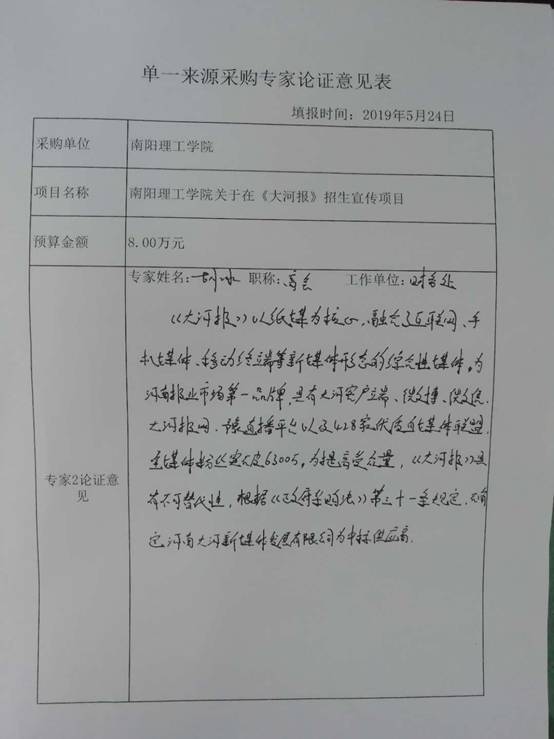 单一来源采购专家论证意见表
填报时间：2019年5月24日
采购单位 南阳理工学院
项目名称 南阳理工学院关于在《大河报》招生宣传项目
预算金额 8.00万元
专家姓名： 职称：高会 工作单位：财务处
《大河报》以纸媒为核心，融合了互联网、手
机媒体、移动终端等新媒体形态的综合性媒体。为
河南报业市场第一品牌，具有大河客户端、微博、微信、
大河报网、直播平台以及428家优质自媒体联盟，
全媒体粉丝 6300万，为提高受众量，《大河报》具
有不可替代性，根据《政府采购法》第三十一条规定，
定河南大河新媒体发展有限公司为中标供应商。
专家2论证意
见